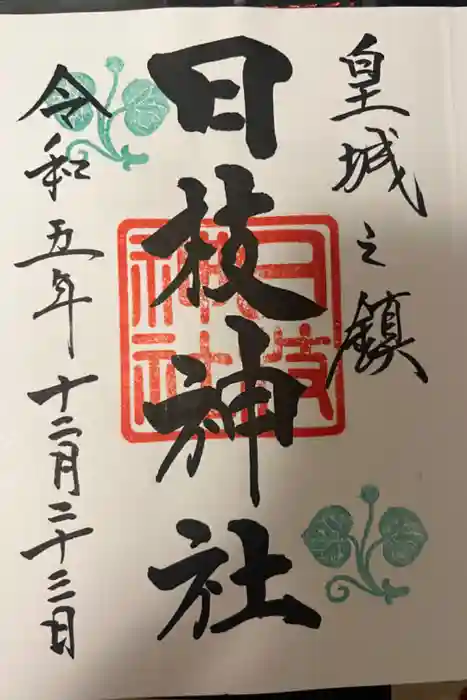 皇城之鎮
日枝神社
日枝神社
令和五年十二月二十三日